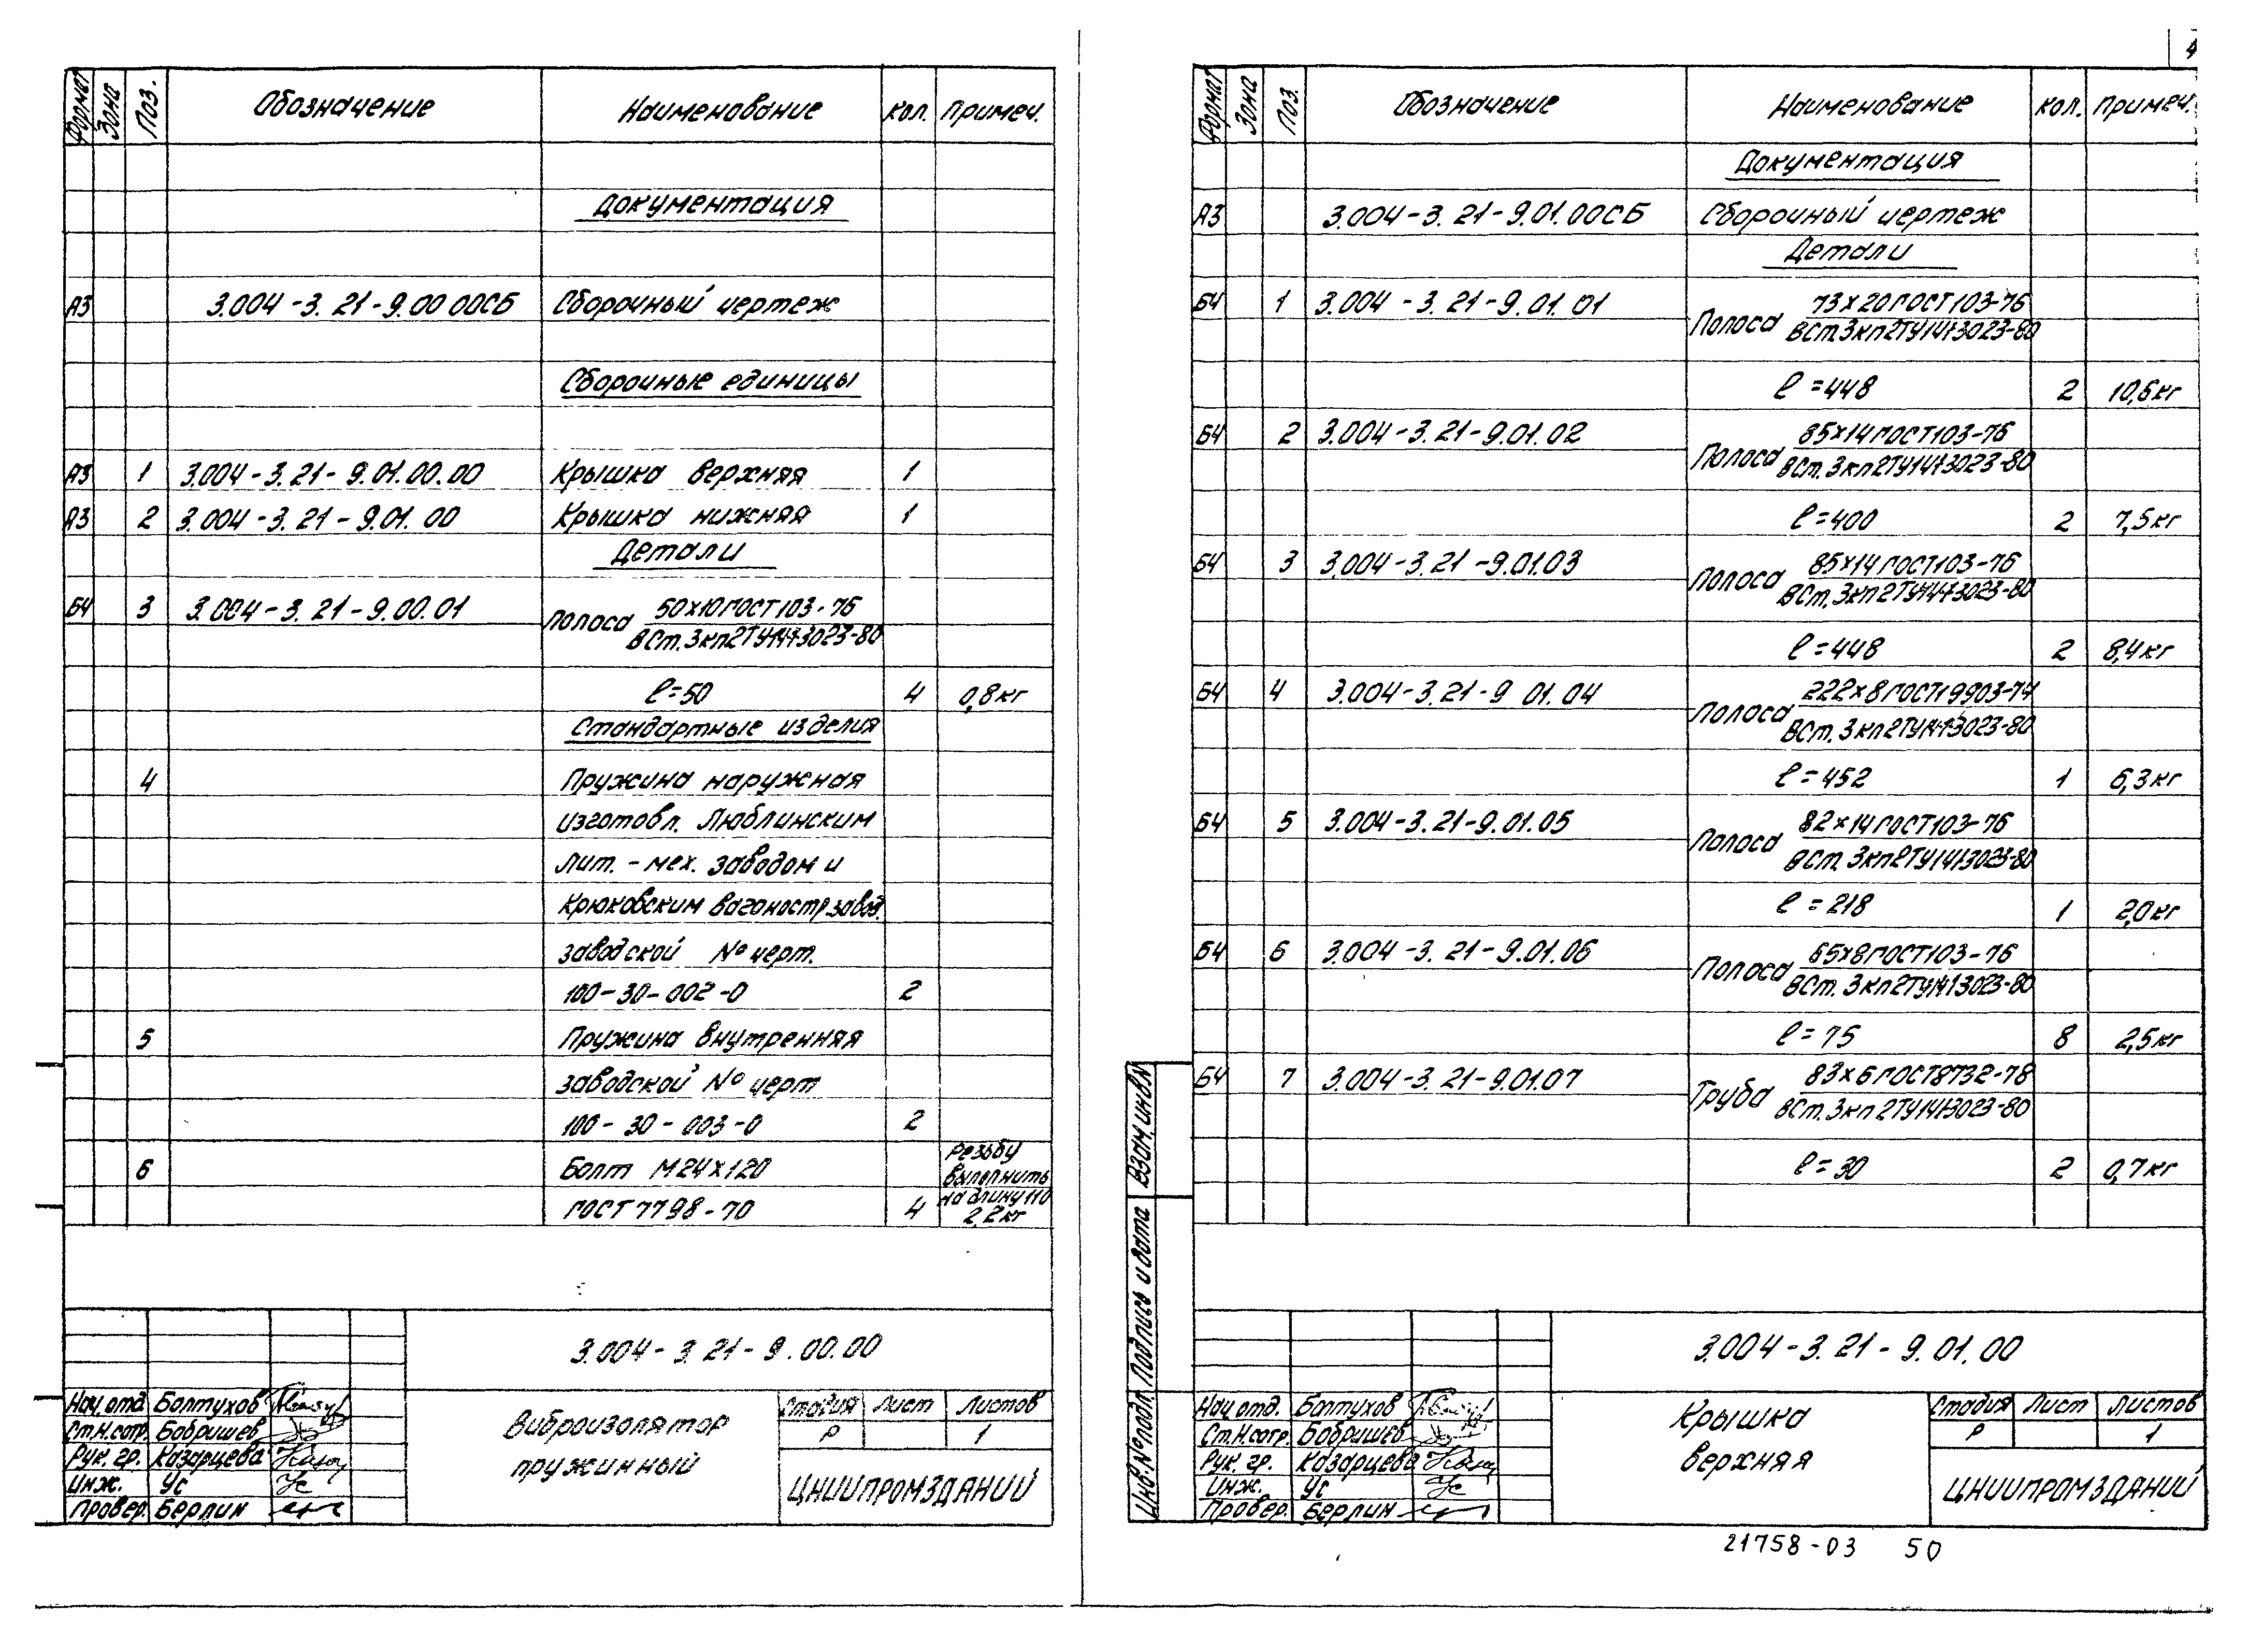 Формат Зона Поз. Обозначение Наименование Кол. Примеч.
Документация
А3 3.004-3.21-9.00 00СБ Сборочный чертеж
Сборочные единицы
А3 1 3.004-3.21-9.01.00.00 Крышка верхняя 1
А3 2 3.004-3.21-9.01.00 Крышка нижняя 1
Детали
БЧ 3 3.004-3.21-9.00.01 Полоса 50х10 ГОСТ 103-76
ВСт.3кп2ТУ14-1-3023-80
ℓ=50 4 0,8 кг
Стандартные изделия
4 Пружина наружная
изготовл. Люблинским
лит.-мех. заводом и
Крюковским вагонострзавод.
заводской № черт.
100-30-002-0 2
5 Пружина внутренняя
заводской № черт
100-30-003-0 2
6 Болт М24х120 Резьбу
выполнить
на длину 110
ГОСТ 7798-70 4 2,2 кг
3.004-3.21-9.00.00
Нач.отд. Болтухов
Ст.Н.сотр. Бобришев
Рук. гр. Казарцева
Инж. Ус
Провер. Берлин
Виброизолятор
пружинный
Стадия Лист Листов
Р 1
ЦНИИПРОМЗДАНИЙ
4
Формат Зона Поз. Обозначение Наименование Кол. Примеч.
Документация
А3 3.004-3.21-9.01.00СБ Сборочный чертеж
Детали
БЧ 1 3.004-3.21-9.01.01 Полоса 73х20 ГОСТ 103-76
ВСт.3кп2ТУ14-1-3023-80
ℓ=448 2 10,6 кг
БЧ 2 3.004-3.21-9.01.02 Полоса 85х14 ГОСТ 103-76
ВСт.3кп2ТУ14-1-3023-80
ℓ=400 2 7,5 кг
БЧ 3 3.004-3.21-9.01.03 Полоса 85х14 ГОСТ 103-76
ВСт.3кп2ТУ14-1-3023-80
ℓ=448 2 8,4 кг
БЧ 4 3.004-3.21-9 01.04 Полоса 222х8 ГОСТ 19903-74
ВСт.3кп2ТУ14-1-3023-80
ℓ=452 1 6,3 кг
БЧ 5 3.004-3.21-9.01.05 Полоса 82х14 ГОСТ 103-76
ВСт.3кп2ТУ14-1-3023-80
ℓ=218 1 2,0 кг
БЧ 6 3.004-3.21-9.01.06 Полоса 65х8 ГОСТ 103-76
ВСт.3кп2ТУ14-1-3023-80
ℓ=75 8 2,5 кг
БЧ 7 3.004-3.21-9.01.07 Труба 83х6 ГОСТ 8732-78
ВСт.3кп2ТУ14-1-3023-80
ℓ=30 2 0,7 кг
Инв.№ подл. Подпись и дата Взам.инв.№
3.004-3.21-9.01.00
Нач.отд. Болтухов
Ст.Н.сотр. Бобришев
Рук. гр. Казарцева
Инж. Ус
Провер. Берлин
Крышка
верхняя
Стадия Лист Листов
Р 1
ЦНИИПРОМЗДАНИЙ
21758-03 50